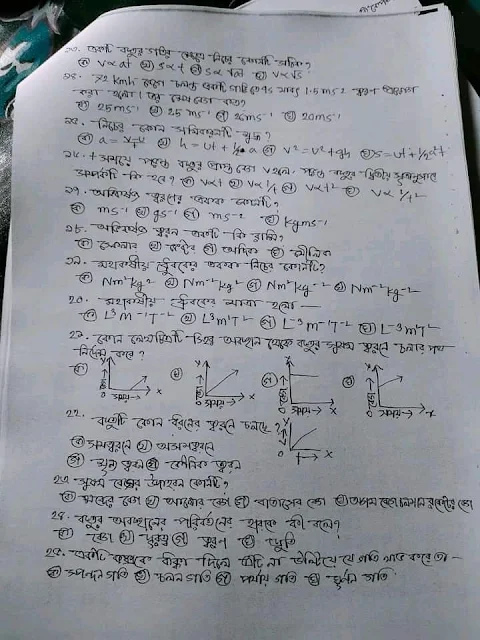 ১৩. একটি বস্তুর গতির ক্ষেত্রে নিচের কোনটি সঠিক?
ক) v∝at খ) s∝t গ) s∝√a ঘ) v∝√s
১৪. 72 kmh বেগে চলন্ত একটি গাড়িকে 4s যাবৎ 1.5ms-2 ত্বরণ প্রয়োগ
করা হলো। শেষ বেগ কত?
ক) 25ms-1 খ) 25 ms-1 গ) 26ms-1 ঘ) 20ms-1
১৫. নিচের কোন সমীকরণটি শুদ্ধ?
খ) h = ut + 1/2 a গ) v² = u² + gh ঘ) s = ut + 1/2at²
১৬. t সময়ে পড়ন্ত বস্তুর প্রাপ্ত বেগ v হলে পড়ন্ত বস্তুর দ্বিতীয় সূত্রানুসারে
সম্পর্কটি কি হবে? ক) v∝t খ) v∝1/t গ) v∝t² ঘ) v∝1/t²
১৭. অভিকর্ষজ ত্বরণের একক কোনটি?
ক) ms-1 খ) gs-1 গ) ms-2 ঘ) kgms-1
১৮. অভিকর্ষজ ত্বরণ একটি কি রাশি?
ক) স্কেলার খ) ভেক্টর গ) অদিক ঘ) মৌলিক
১৯. মহাকর্ষীয় ধ্রুবকের একক নিচের কোনটি?
ক) Nm²kg-² খ) Nm-²kg² গ) Nm²kg-¹ ঘ) Nm-²kg-²
২০. মহাকর্ষীয় ধ্রুবকের মাত্রা হলো —
ক) L³M-¹T-² খ) L³M¹T² গ) L-³M-¹T-² ঘ) L-³M¹T²
২১. কোন লেখচিত্রটি স্থির অবস্থান থেকে বস্তুর সুষম ত্বরণে চলার পথ
নির্দেশ করে?
ক) Y বেগ O সময়→ X খ) Y বেগ O সময়→ X গ) Y বেগ O সময়→ X ঘ) Y বেগ O সময়→ X
২২. বস্তুটি কোন ধরনের ত্বরণে চলছে?
ক) সমত্বরণে খ) অসমত্বরণে
গ) ত্বরণ ঘ) কৌণিক ত্বরণ
Y O t→ X
২৩. সুষম বেগের উদাহরণ কোনটি?
ক) শব্দের বেগ খ) আলোর বেগ গ) বাতাসের বেগ ঘ) বেগ
২৪. বস্তুর অবস্থানের পরিবর্তনের হারকে কী বলে?
ক) বেগ খ) দূরত্ব গ) ত্বরণ ঘ) দ্রুতি
২৫. একটি বস্তুকে ধাক্কা দিলে যে গতি লাভ করে তা —
ক) স্পন্দন গতি খ) চলন গতি গ) পর্যায় গতি ঘ) ঘূর্ণন গতি